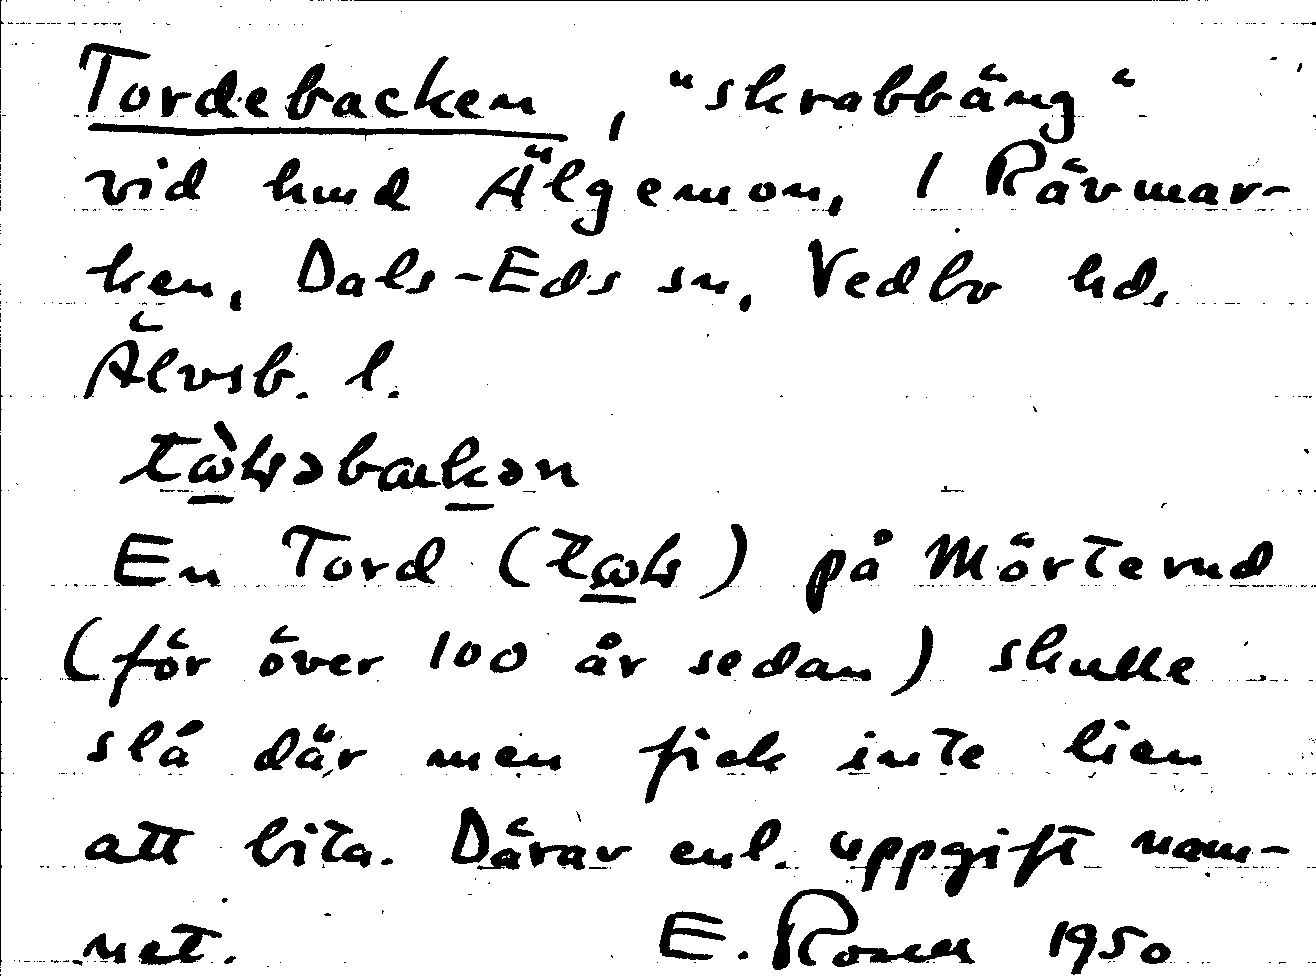 Tordebacken, "skrabbäng"
vid hmd Älgemon, 1 Rävmar-
ken, Dals-Eds sn, Vedbo hd,
Älvsb. l.
En Tord ( ) på Mörterud
(för över 100 år sedan) skulle
slå där men fick inte lien
att bita. Därav enl. uppgift nam-
net. E. Rosell 1950